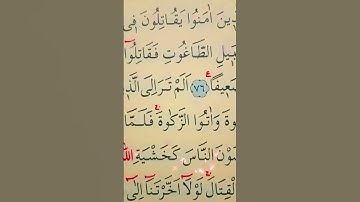 ِينَ اٰمَنُوا يُقَاتِلُونَ فِى
بِيلِ الطَّاغُوتِ فَقَاتِلُوا
ضَعِيفًا ﴿٧٦﴾ اَلَمْ تَرَ اِلَى الَّذ
وةَ وَاٰتُوا الزَّكٰوةَ فَلَمَّا
شَوْنَ النَّاسَ كَخَشْيَةِ اللّٰه
الْقِتَالَ لَوْلَا اَخَّرْتَنَا اِلٰى